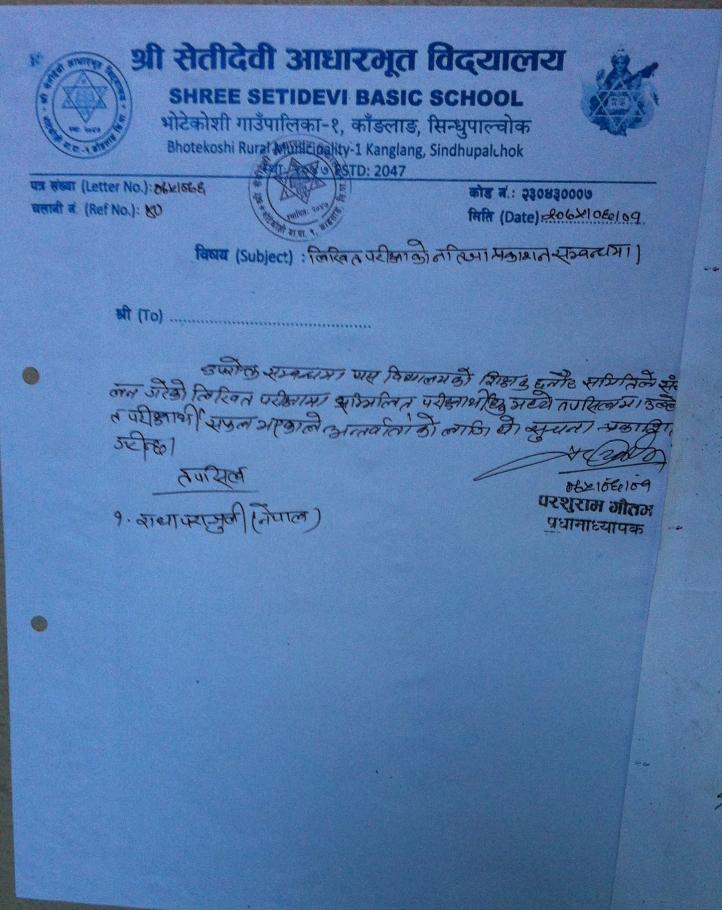 श्री सेतीदेवी आधारभूत विद्यालय
SHREE SETIDEVI BASIC SCHOOL
भोटेकोशी गाउँपालिका-१, काँङलाङ, सिन्धुपाल्चोक
Bhotekoshi Rural Municipality-1 Kanglang, Sindhupalchok
ESTD: 2047
पत्र संख्या (Letter No.):
कोड नं.: २३०४३०००७
चलानी नं. (Ref No.): १०
मिति (Date):
विषय (Subject) : लिखित परीक्षाको नतिजा प्रकाशन सम्वन्धमा।
श्री (To) ........................................
उपरोक्त सम्वन्धमा यस विद्यालयको शिक्षक छनौट समितिले संञ्चा
लन गरेको लिखित परीक्षामा सम्मिलित परीक्षार्थीहरु मध्ये तपसिलमा उल्लेखि
त परीक्षार्थी सफल भएकाले अन्तर्वार्ताको लागि यो सुचना प्रकाशित
गरीन्छ।
तपसिल
परशुराम गौतम
१. राधा पराजुली (नेपाल)
प्रधानाध्यापक